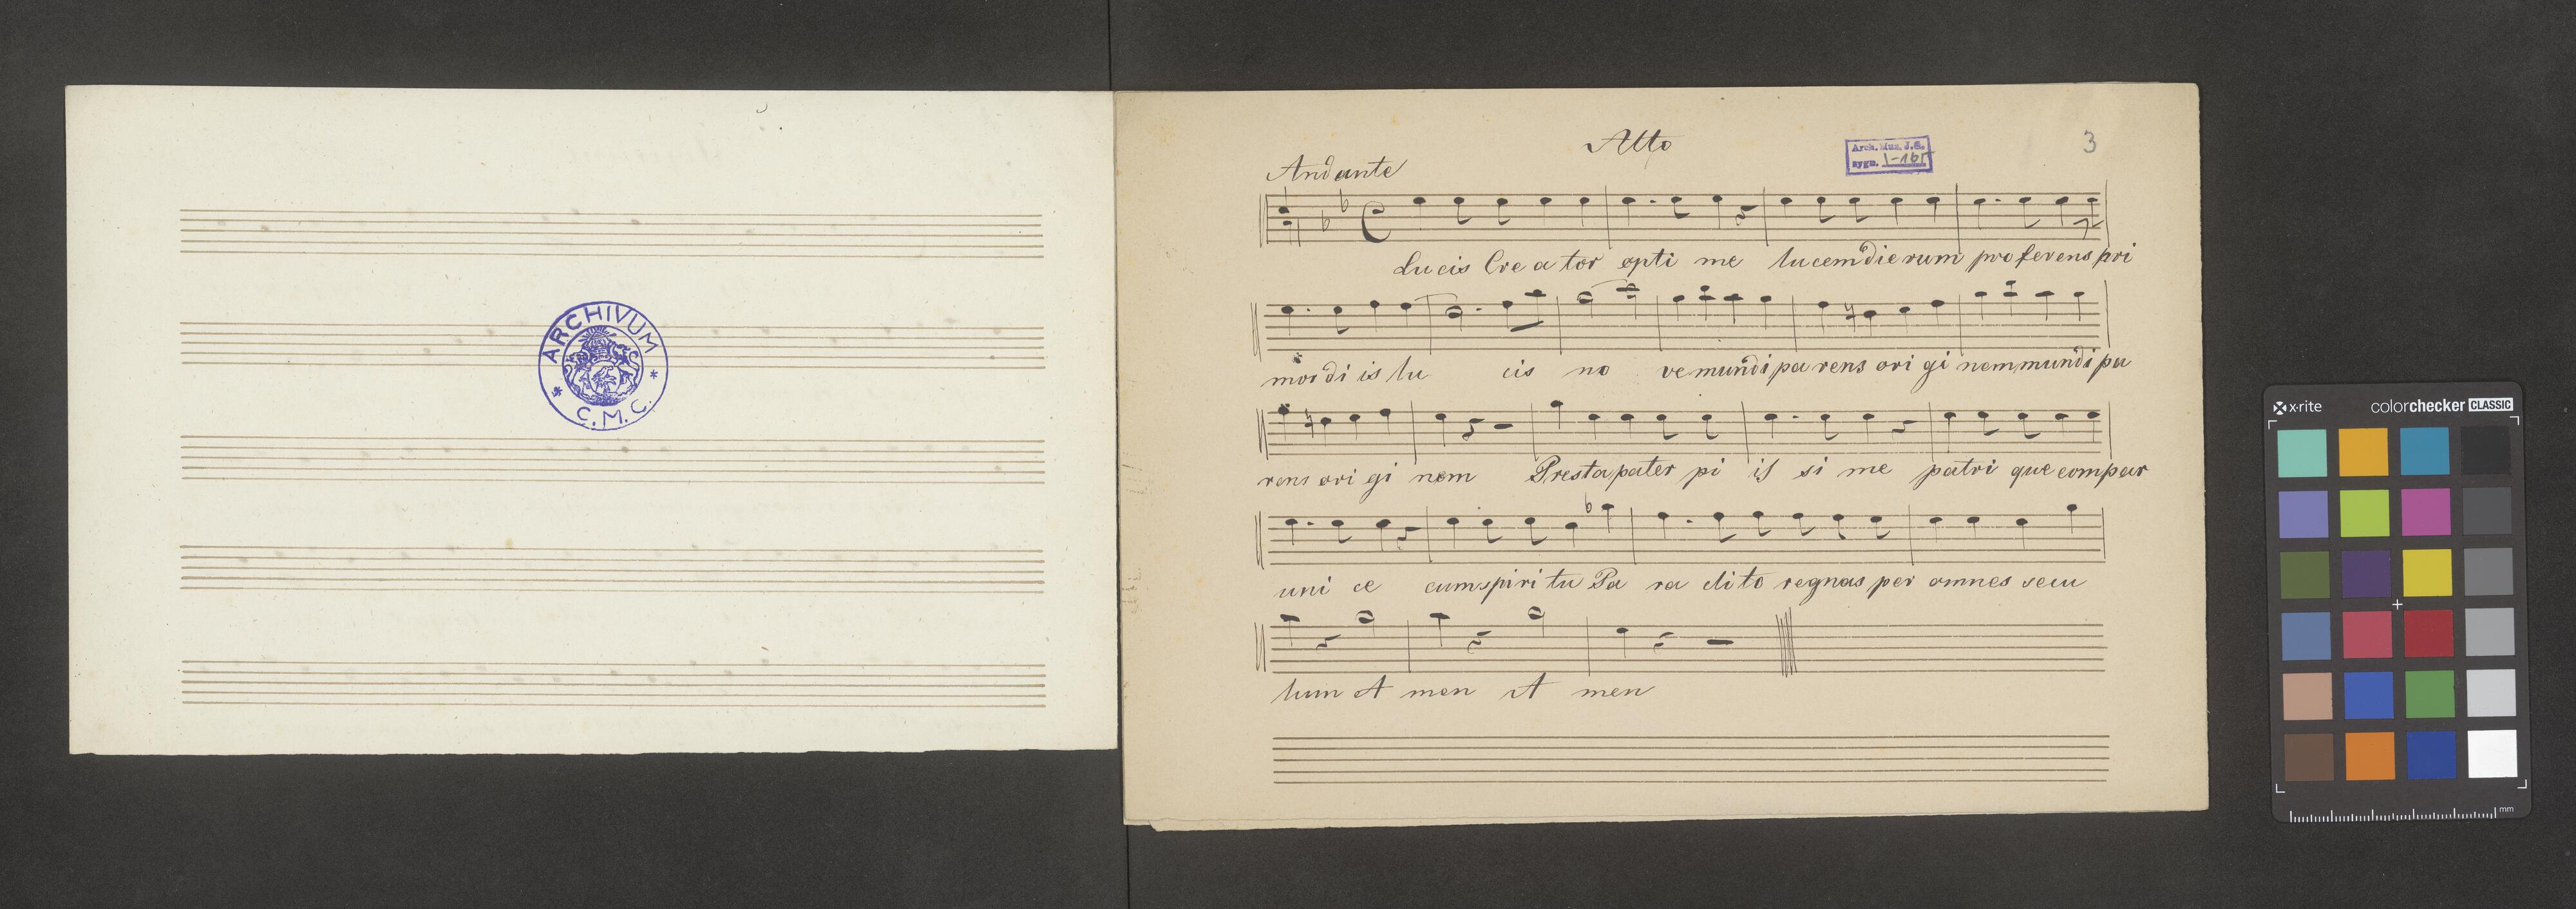 ARCHIVUM
* C.M.C. *
Alto
Arch. Mus. J.G.
sygn. I-165
3
Andante
Lucis Creator optime lucem dierum proferens pri
mordiis lu cis no ve mundi parens ori gi nem mundi pa
rens ori gi nem Presta pater pi is si me patri que compar
uni ce cum spiritu Pa ra clito regnas per omnes secu
lum A men A men
x-rite
colorchecker CLASSIC
mm